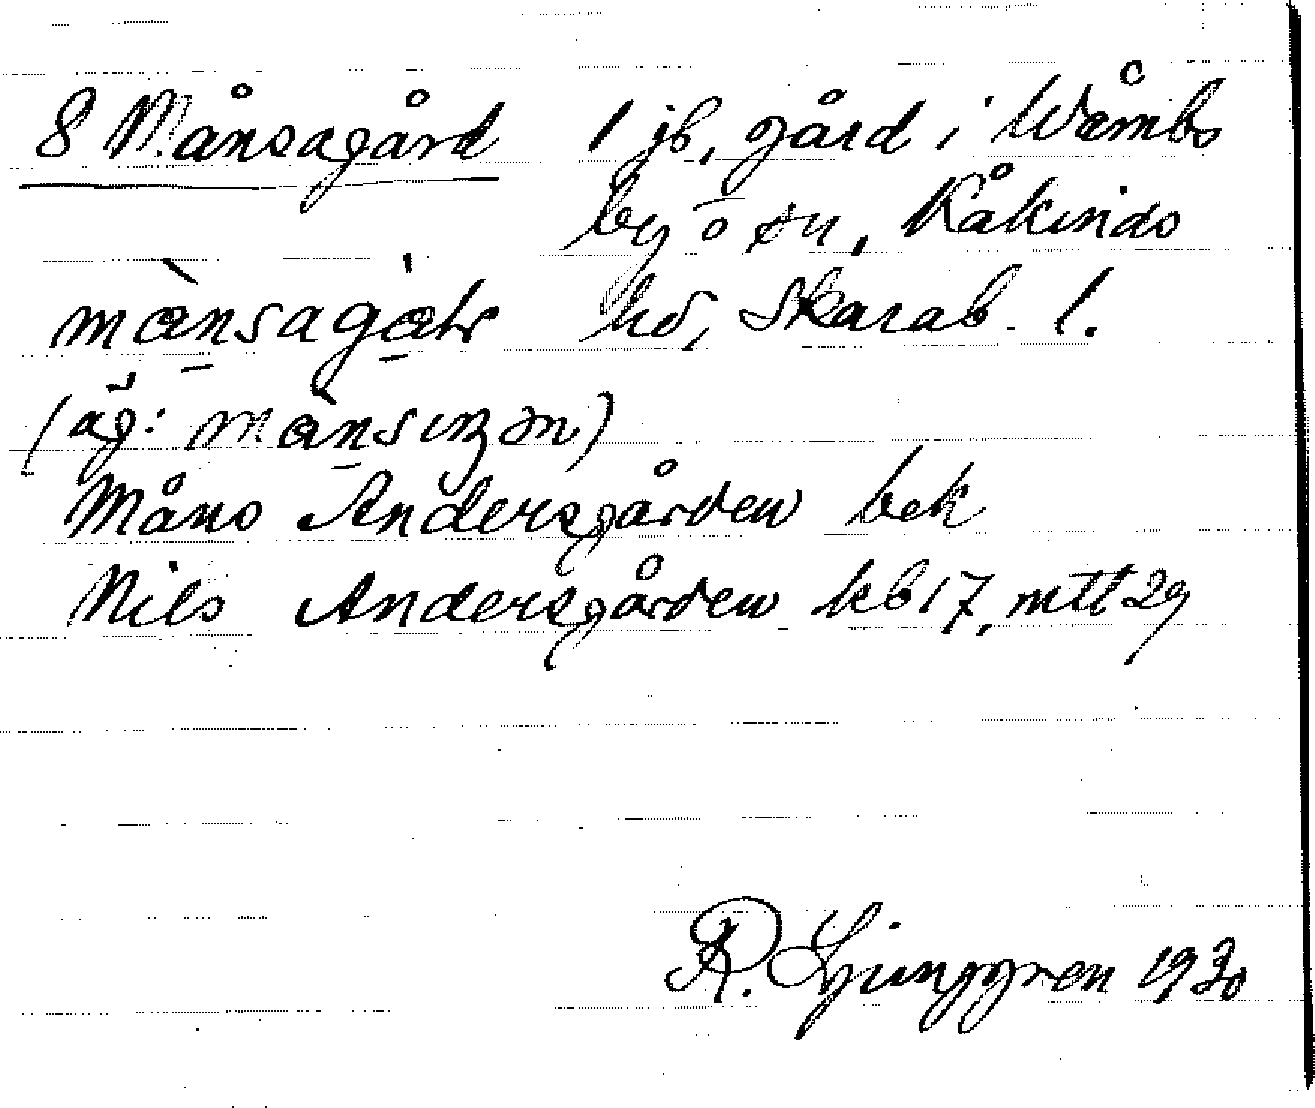 8 Månsagård 1 jb. gård i Wåmbs
by o sn, Kåkinds
mànsagáɷ hd, Skarab. l.
(äg:
Måns Andersgården bek
Nils Andersgården kb 17, mtt 29
R. Ljunggren 1930